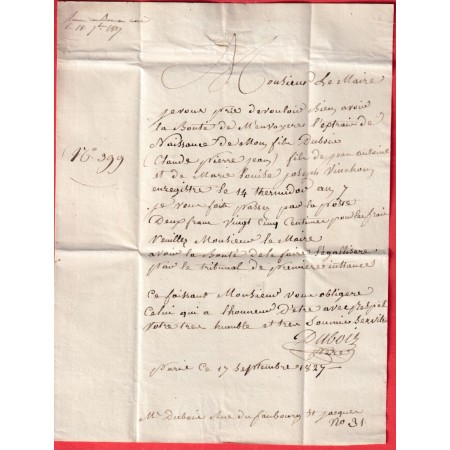 le 18 7bre 1827
Monsieur Le Maire
je vous prie de vouloir bien, avoir
la Bonté de M'envoyere l'extrait de
Naissance de Mon, fils Dubois
(Claude pierre jean) fils de jean antoine
et de Marie Louise joseph Vinchon,
enregistre le 14 thermidor an 7
N.o 399
je vous fait passer par la poste
Deux franc vingt cinq Centimes pour les frais
Veuillez Monsieur le Maire
avoir la Bonté de le faire légallisere
par le tribunal de premiere instance
Ce faisant Monsieur vous obligere
Celui qui a l'honneur d'etre avec Respect
Votre tres humble et tres Soumis Serviteur
Dubois
pere
Paris ce 17 Septembre 1827
Mr Dubois Rue du faubourg St jacques
No 31